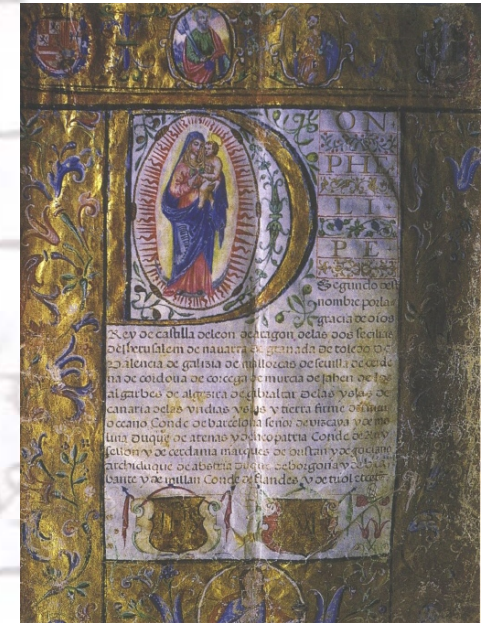 DON
PHE
LI
PE
Segundo dest
nombre por la
gracia de dios
Rey de castilla de leon de aragon delas dos secilias
de Jerusalem de navarra de granada de toledo de
Valencia de galisia de mallorcas de sevilla de cerde
na de cordova de corcega de murcia de Jahen de los
algarbes de algezira de gibraltar delas yslas de
canaria delas yndias yslas y tierra firme del mar
oceano Conde de barcelona señor de viscaya y de mo
lina Duque de atenas y de neopatria Conde de Ruy
sellon y de cerdania marques de oristan y de gociano
archiduque de abstria Duque de borgoña y de bra
bante y de millan Conde de flandes y de tirol etcet